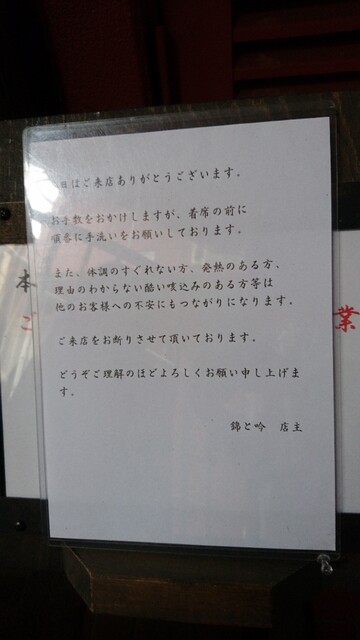 日はご来店ありがとうございます。
お手数をおかけしますが、着席の前に
順番に手洗いをお願いしております。
また、体調のすぐれない方、発熱のある方、
理由のわからない酷い咳込みのある方等は
他のお客様への不安にもつながりになります。
ご来店をお断りさせて頂いております。
どうぞご理解のほどよろしくお願い申し上げま
す。
錦と吟　店主
本
ご
業